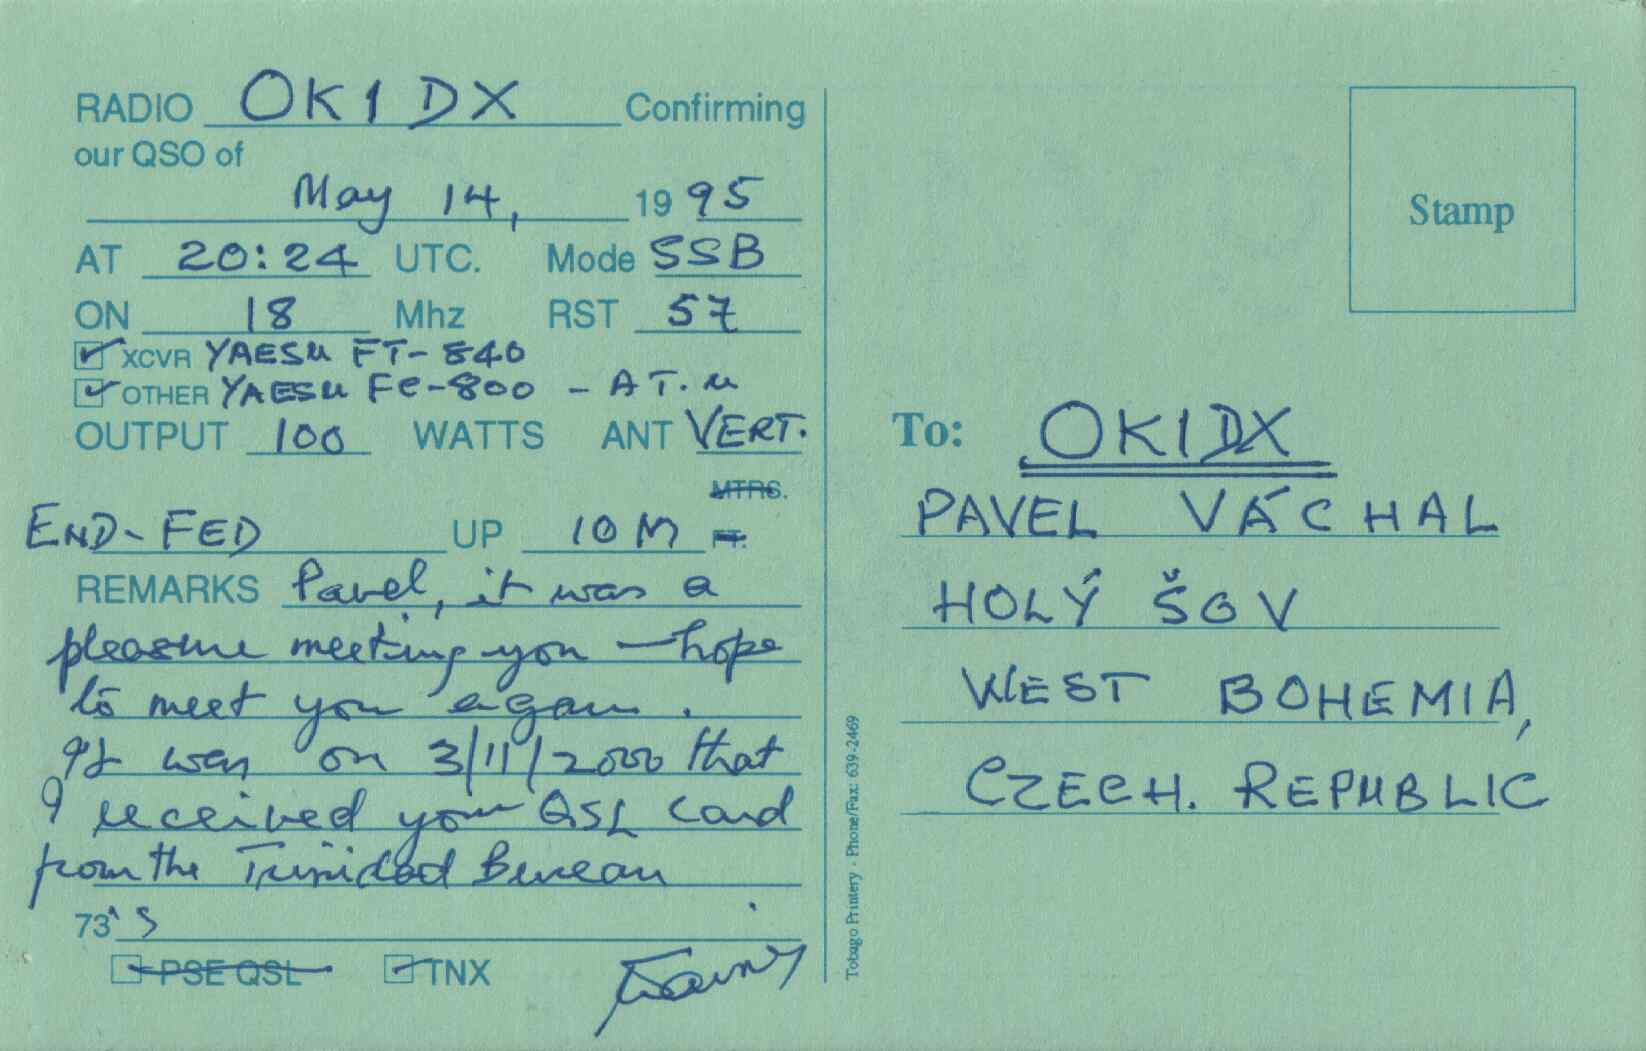 RADIO OK1DX Confirming
our QSO of
May 14, 1995
AT 20:24 UTC. Mode SSB
ON 18 Mhz RST 57
XCVR YAESU FT-840
OTHER YAESU FC-800 - AT.U
OUTPUT 100 WATTS ANT VERT.
MTRS.
END-FED UP 10 M FT.
REMARKS Pavel, it was a
pleasure meeting you - hope
to meet you again.
It was on 3/11/2000 that
I received your QSL card
from the Trinidad Bureau.
73's
PSE QSL TNX
Stamp
To: OK1DX
PAVEL VÁCHAL
HOLÝ ŠOV
WEST BOHEMIA,
CZECH. REPUBLIC
Tobago Printery - Phone/Fax: 639-2469